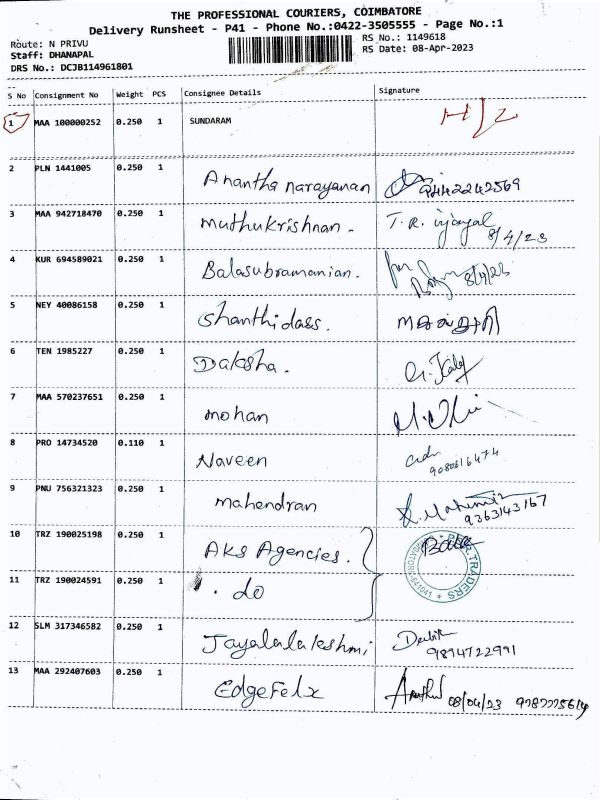 THE PROFESSIONAL COURIERS, COIMBATORE
Delivery Runsheet - P41 - Phone No.:0422-3505555 - Page No.:1
Route: N PRIVU
RS No.: 1149618
Staff: DHANAPAL
RS Date: 08-Apr-2023
DRS No.: DCJB114961801
S No Consignment No Weight PCS Consignee Details Signature
1 MAA 100000252 0.250 1 SUNDARAM
2 PLN 1441005 0.250 1 Anantha narayanan 9442242569
3 MAA 942718470 0.250 1 Muthukrishnan. T.R.
8/4/23
4 KUR 694589021 0.250 1 Balasubramanian. for
8/4/23
5 NEY 40086158 0.250 1 Shanthidass.
6 TEN 1985227 0.250 1 Daksha.
7 MAA 570237651 0.250 1 mohan
8 PRO 14734520 0.110 1 Naveen
9080616474
9 PNU 756321323 0.250 1 mahendran
9363143167
10 TRZ 190025198 0.250 1 AKS Agencies.
11 TRZ 190024591 0.250 1 do
TRADERS
641041
12 SLM 317346582 0.250 1 Jayalalakshmi
9894722991
13 MAA 292407603 0.250 1 EdgeFelx 08/04/23